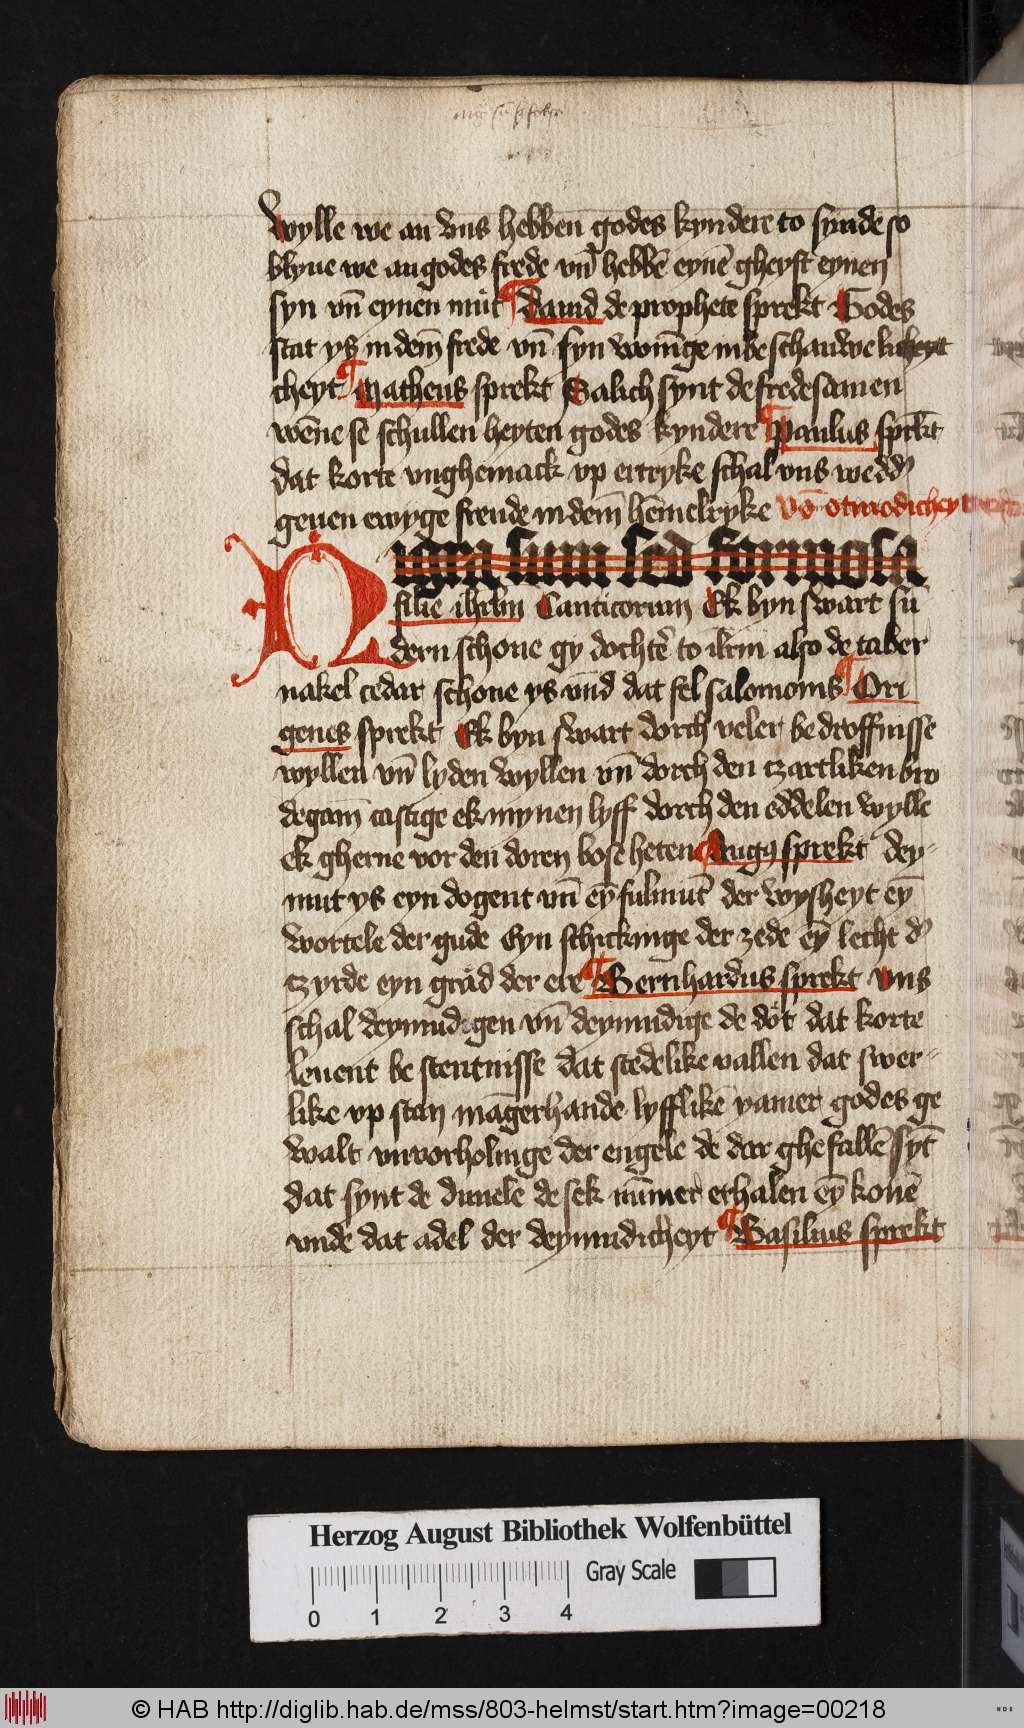 wylle we an vns hebben godes kyndere to synde so
blyue we an godes frede vn̄ hebbē eynē gheyst eynen
syn vn̄ eynen můt ¶ Dauid de prophete sprekt Godes
stat ys in dem̄ frede vn̄ syn woni̅ge in be schauwe
cheyt ¶ Matheus sprekt Salich synt de fredesamen
wēne se schullen heyten godes kyndere ¶ Paulus sprekt
dat korte vnghemack vp ertryke schal vns wedd̾
geuen ewyge freude in dem̄ hēmelryke Vō otmodichey
Nigra sum sed formosa
filie ihrlm Canticorum Ek byn swart sū
dern schone gy dochtē to ihrm also de taber
nakel cedar schone ys vnd dat fel salomonis ¶ Ori
genes sprekt Ek byn swart dorch veler bedroffnisse
wyllen vn̄ lyden wyllen vn̄ dorch den tzartliken bro
degam̄ castige ek mynen lyff dorch den eddelen wylle
ek gherne vor den doren bose heten ¶ Augꝯ sprekt dey-
mut ys eyn dogent vn̄ eȳ fulmūt der wysheyt eȳ
wortele der gude Eyn schickinge der zede eȳ lecht d̾
tzyrde eyn grad der ere ¶ Bernhardus sprekt Vns
schal deymudigen vn̄ deymudige de dot dat korte
leuent be stentnisse dat stedelike vallen dat swer-
like vp stan māgerhande lyfflikē yamer godes ge
walt vnvorholinge der engele de dar ghe fallē sȳt
dat synt de duuele de sek nūmer erhalen eȳ konē
vnde dat adel der deymudicheyt ¶ Basilius sprekt
Herzog August Bibliothek Wolfenbüttel
Gray Scale
0 1 2 3 4
© HAB http://diglib.hab.de/mss/803-helmst/start.htm?image=00218